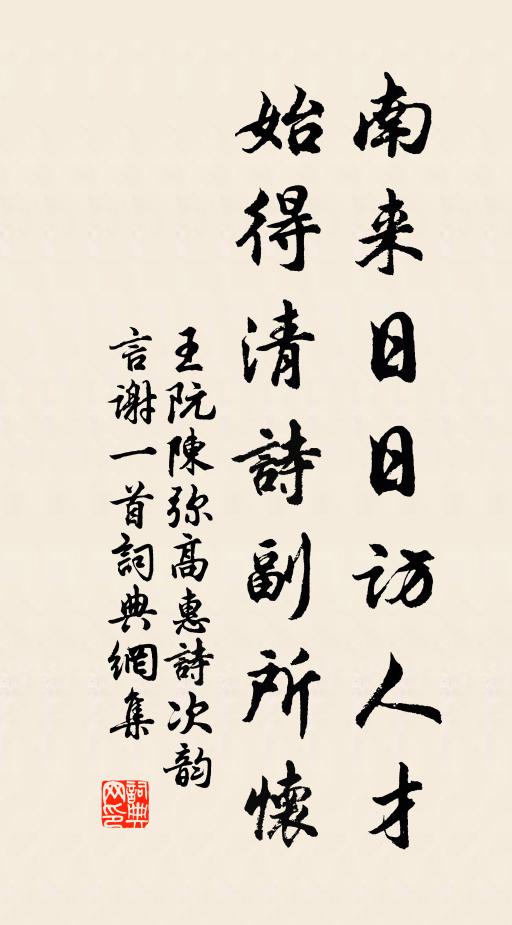 南来日日访人才
始得清詩副所懷
王阮陳弥高惠詩次韵
言谢一首詞典網集
詞典网印